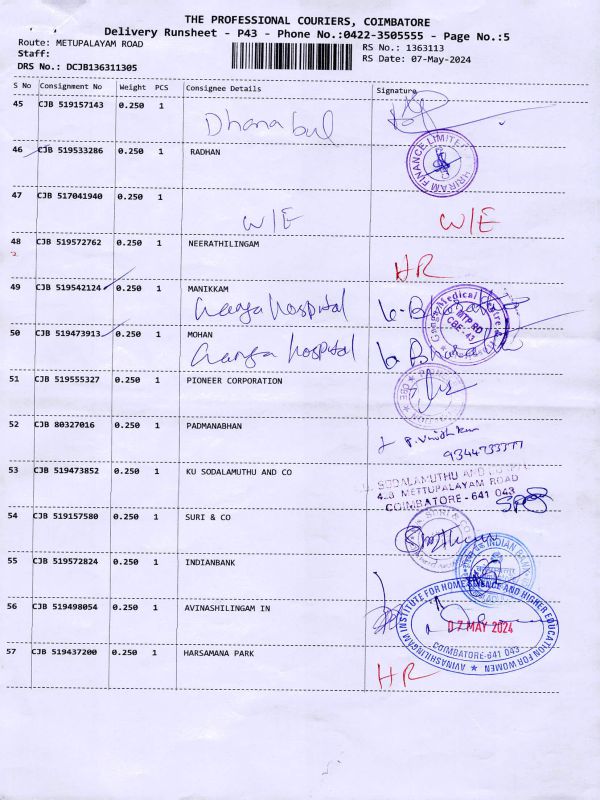 THE PROFESSIONAL COURIERS, COIMBATORE
Delivery Runsheet - P43 - Phone No.:0422-3505555 - Page No.:5
Route: METUPALAYAM ROAD
RS No.: 1363113
Staff:
RS Date: 07-May-2024
DRS No.: DCJB136311305
S No Consignment No Weight PCS Consignee Details Signature
45 CJB 519157143 0.250 1
Dhanabul
46 CJB 519533286 0.250 1 RADHAN
SHRIRAM FINANCE LIMITED
47 CJB 517041940 0.250 1
W/E W/E
48 CJB 519572762 0.250 1 NEERATHILINGAM
HR
49 CJB 519542124 0.250 1 MANIKKAM
Ganga hospital
Ganga Medical Centre
MTP RD
CBE-43
50 CJB 519473913 0.250 1 MOHAN
Ganga hospital
51 CJB 519555327 0.250 1 PIONEER CORPORATION
52 CJB 80327016 0.250 1 PADMANABHAN
9344733377
53 CJB 519473852 0.250 1 KU SODALAMUTHU AND CO
SODALAMUTHU AND
METTUPALAYAM ROAD
COIMBATORE-641 043
54 CJB 519157580 0.250 1 SURI & CO
55 CJB 519572824 0.250 1 INDIANBANK
INDIAN BANK
56 CJB 519498054 0.250 1 AVINASHILINGAM IN
AVINASHILINGAM INSTITUTE FOR HOME SCIENCE AND HIGHER EDUCATION FOR WOMEN
07 MAY 2024
COIMBATORE-641 043
57 CJB 519437200 0.250 1 HARSAMANA PARK
HR